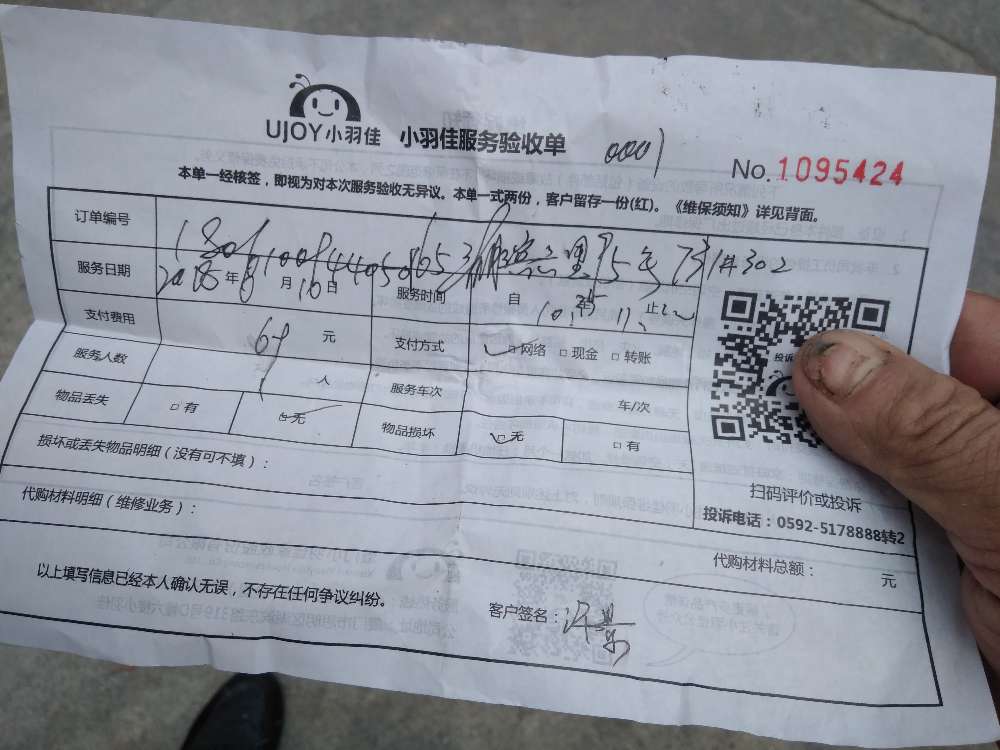 UJOY小羽佳 小羽佳服务验收单 0001
No.1095424
本单一经核签，即视为对本次服务验收无异议。本单一式两份，客户留存一份(红)。《维保须知》详见背面。
订单编号
服务日期 2018年8月10日 服务时间 自 止
支付费用 69 元 支付方式 □网络 □现金 □转账
服务人数 1 人 服务车次 车/次
物品丢失 □有 □无 物品损坏 □无 □有
损坏或丢失物品明细（没有可不填）：
扫码评价或投诉
投诉电话：0592-5178888转2
代购材料明细（维修业务）：
代购材料总额： 元
以上填写信息已经本人确认无误，不存在任何争议纠纷。
客户签名：